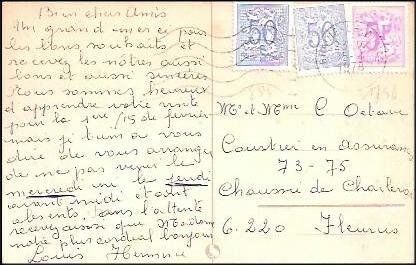 Bien chers Amis
Un grand merci pour
les bons souhaits et
recevez les nôtres aussi
bons et aussi sincères
Nous sommes heureux
d'apprendre votre visite
pour la 1ère/15 de février
mais je tiens à vous
dire de vous arranger
de ne pas venir le
mercredi ni le jeudi
avant midi et soit
absents. Dans l'attente
recevez ainsi que Madame
notre plus cordial bonjour
Louis
50
50
5F
1978
Mr et Mme C Octave
Courtier en Assurances
73-75
Chaussée de Charleroi
6.220 Fleurus